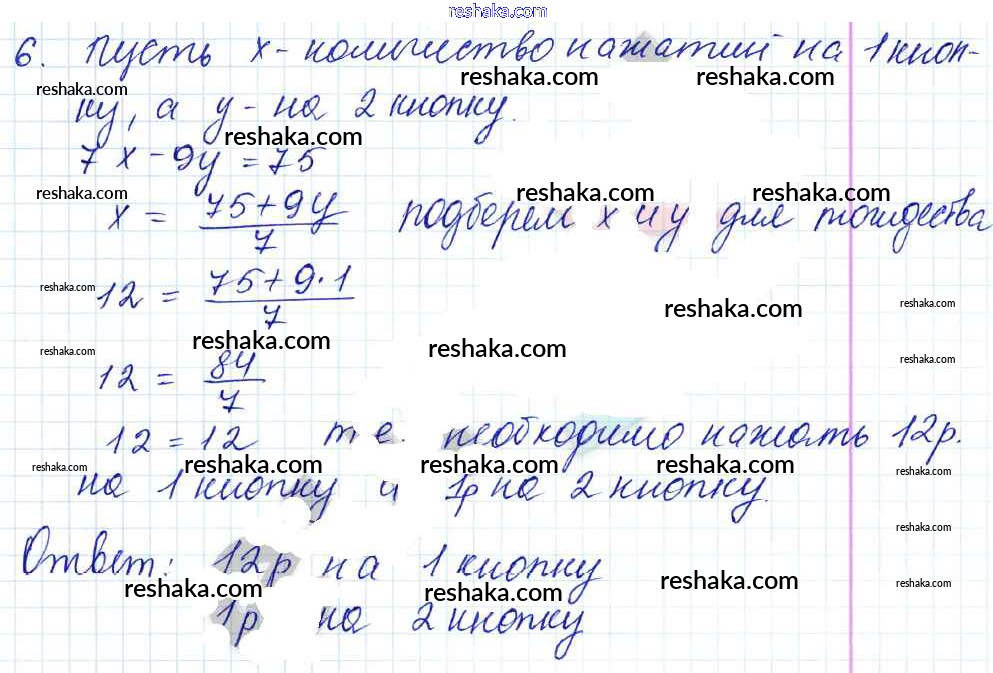 reshaka.com
6. Пусть x - количество нажатий на 1 кноп-
reshaka.com reshaka.com reshaka.com
ку, а y - на 2 кнопку.
reshaka.com
7x - 9y = 75
reshaka.com reshaka.com reshaka.com
x = (75+9y)/7 подберем x и y для тождества
reshaka.com reshaka.com
12 = (75+9·1)/7
reshaka.com
reshaka.com reshaka.com reshaka.com reshaka.com
12 = 84/7
12 = 12 т.е. необходимо нажать 12р.
reshaka.com reshaka.com reshaka.com reshaka.com reshaka.com
на 1 кнопку и 1р на 2 кнопку.
reshaka.com
Ответ: 12р на 1 кнопку
reshaka.com reshaka.com reshaka.com reshaka.com
1р на 2 кнопку